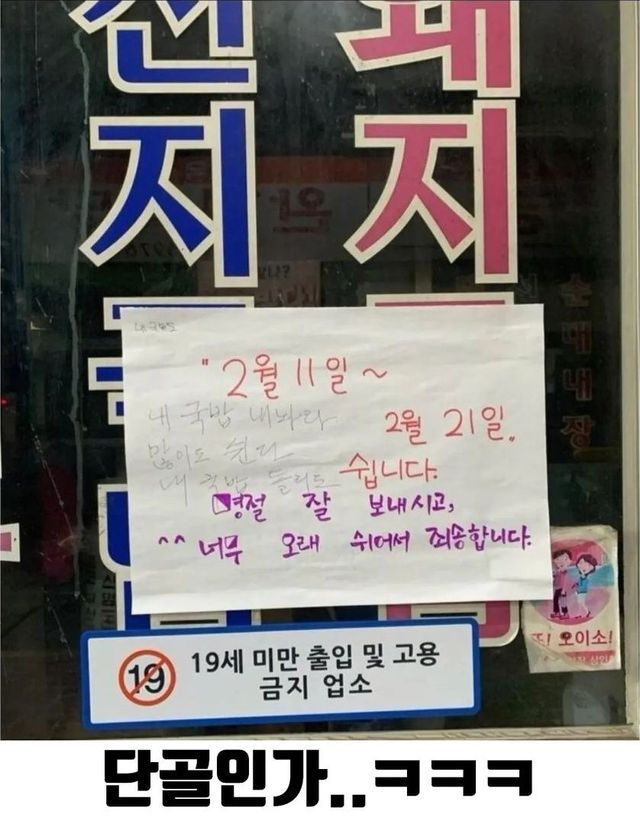 지
지
내 국밥
"2월 11일~
2월 21일.
쉽니다.
내 국밥 내놔라
많이도 쉰다
내 국밥 돌리도
명절 잘 보내시고,
^^ 너무 오래 쉬어서 죄송합니다.
순대내장
또! 오이소!
19
19세 미만 출입 및 고용
금지 업소
단골인가..ㅋㅋㅋ